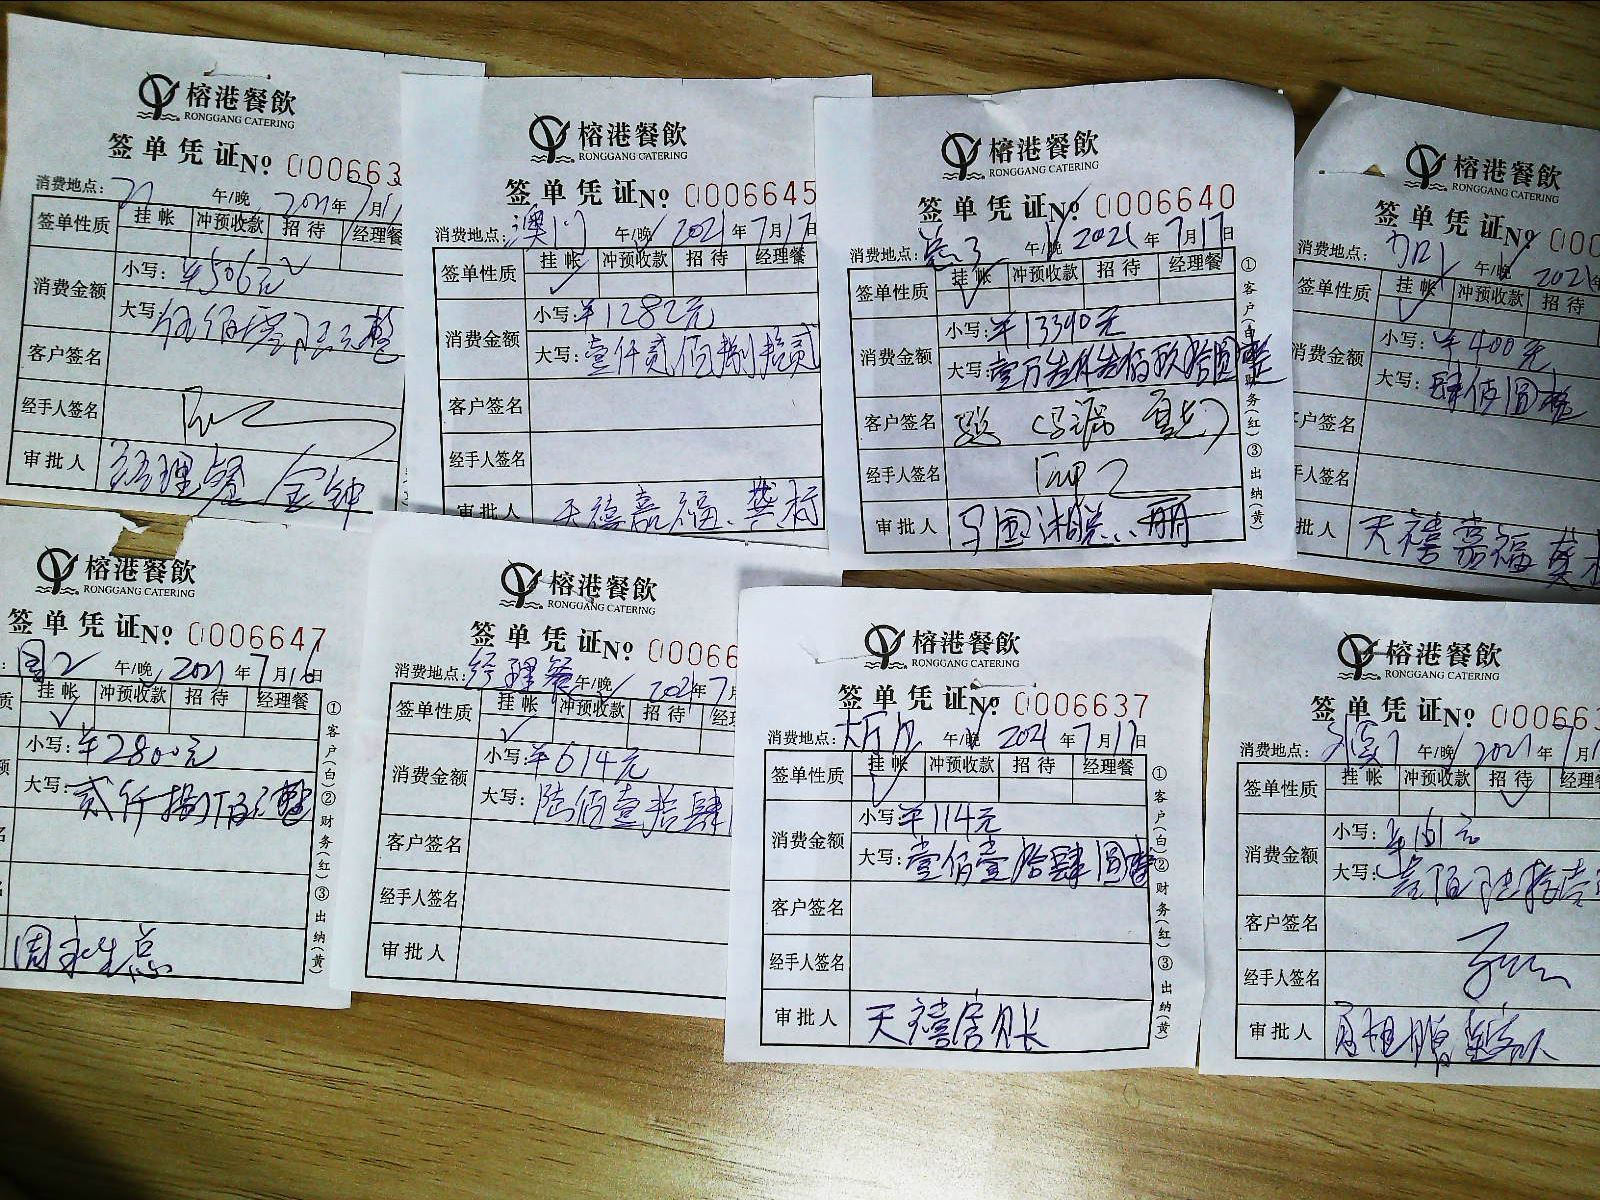 榕港餐飲
RONGGANG CATERING
签单凭证No 000663
消费地点: 午/晚 2021年7月1
签单性质 挂帐 冲预收款 招待 经理餐
消费金额 小写:￥506元
大写:伍佰零陆元整
客户签名
经手人签名
审批人 经理餐 金钟
榕港餐飲
RONGGANG CATERING
签单凭证No 0006645
消费地点:澳门 午/晚 2021年7月17日
签单性质 挂帐 冲预收款 招待 经理餐
消费金额 小写:￥1282元
大写:壹仟贰佰捌拾贰
客户签名
经手人签名
审批人 天禧嘉福、龚标
榕港餐飲
RONGGANG CATERING
签单凭证No 0006640
消费地点: 午/晚 2021年7月17日
签单性质 挂帐 冲预收款 招待 经理餐
消费金额 小写:￥13390元
大写:壹万叁仟叁佰玖拾圆整
客户签名
经手人签名
审批人
①客户(白)②财务(红)③出纳(黄)
榕港餐飲
RONGGANG CATERING
签单凭证No 000
消费地点: 午/晚 2021年
签单性质 挂帐 冲预收款 招待
消费金额 小写:￥400元
大写:肆佰圆整
客户签名
经手人签名
审批人 天禧嘉福 龚标
榕港餐飲
RONGGANG CATERING
签单凭证No 0006647
: 午/晚 2021年7月16日
质 挂帐 冲预收款 招待 经理餐
额 小写:￥2800元
大写:贰仟捌佰元整
名
名
周永生总
①客户(白)②财务(红)③出纳(黄)
榕港餐飲
RONGGANG CATERING
签单凭证No 00066
消费地点:经理餐 午/晚 2021年7月
签单性质 挂帐 冲预收款 招待 经理
消费金额 小写:￥614元
大写:陆佰壹拾肆
客户签名
经手人签名
审批人
榕港餐飲
RONGGANG CATERING
签单凭证No 0006637
消费地点:大厅 午/晚 2021年7月17日
签单性质 挂帐 冲预收款 招待 经理餐
消费金额 小写:￥114元
大写:壹佰壹拾肆圆整
客户签名
经手人签名
审批人 天禧房账
①客户(白)②财务(红)③出纳(黄)
榕港餐飲
RONGGANG CATERING
签单凭证No 000663
消费地点: 午/晚 2021年7月1
签单性质 挂帐 冲预收款 招待 经理
消费金额 小写:￥161元
大写:壹佰陆拾壹
客户签名
经手人签名
审批人